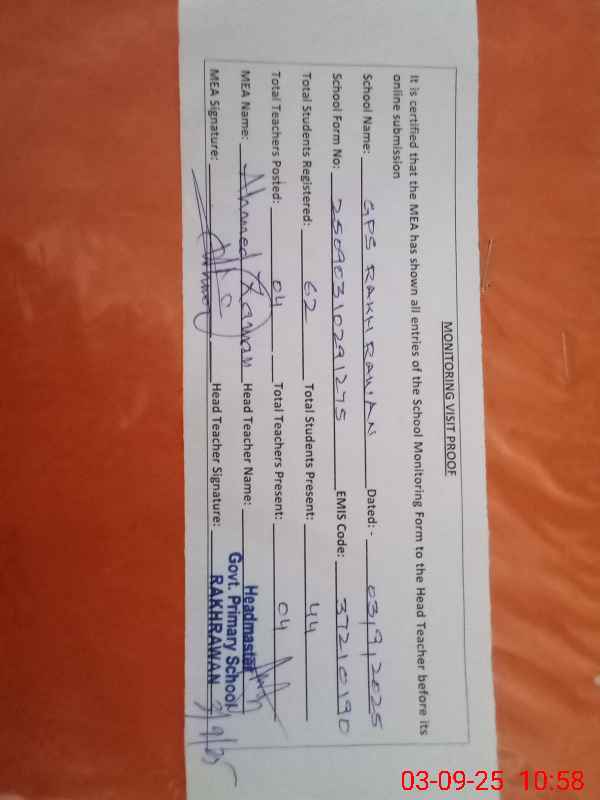 MONITORING VISIT PROOF
It is certified that the MEA has shown all entries of the School Monitoring Form to the Head Teacher before its
online submission
School Name: GPS RAKH RAWAN Dated: - 03/9/2025
School Form No: 25090310291275 EMIS Code: 37210190
Total Students Registered: 62 Total Students Present: 44
Total Teachers Posted: 04 Total Teachers Present: 04
MEA Name: Ahmed Head Teacher Name: Headmaster
Govt. Primary School
MEA Signature: Head Teacher Signature: RAKHRAWAN 3/9/25
03-09-25 10:58